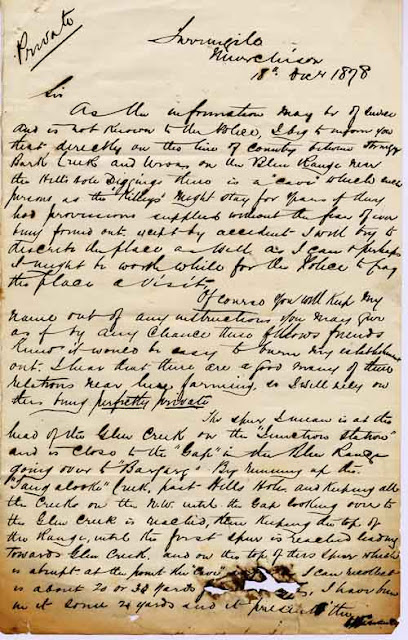 Private
Murchison
18th Decr 1878
Sir
As the information may be of service
and is not known to the Police, I beg to inform you
that directly on the line of country between Stringy
Bark Creek and on the Blue Range near
the Hells hole Diggings there is a "cave" which such
persons as the "Kellys" might stay for years if they
had provisions supplied without the fear of ever
being found out, except by accident I will try to
describe the place as well as I can & perhaps
it might be worth while for the Police to pay
the place a visit,
Of course you will keep my
name out of any instructions you may give
as if by any chance these fellows friends
knew it would be easy to burn my establishment
out. I hear that there are a good many of their
relations near here farming, so I will rely on
this being perfectly private
The spur I mean is at the
head of the Glen Creek on the "Junction Station"
and is close to the "Gap" in the Blue Range
going over to By running up the
Creek, past Hells Hole, and keeping all
the Creeks on the N.W. until the Gap looking over to
the Glen Creek is reached, then keeping the top of
the Range, until the first spur is reached leading
towards Glen Creek, and on the top of this spur which
is abrupt at the point the "Cave" I can recollect
is about 20 or 30 yards I have been
in it some 20 yards and it presents the